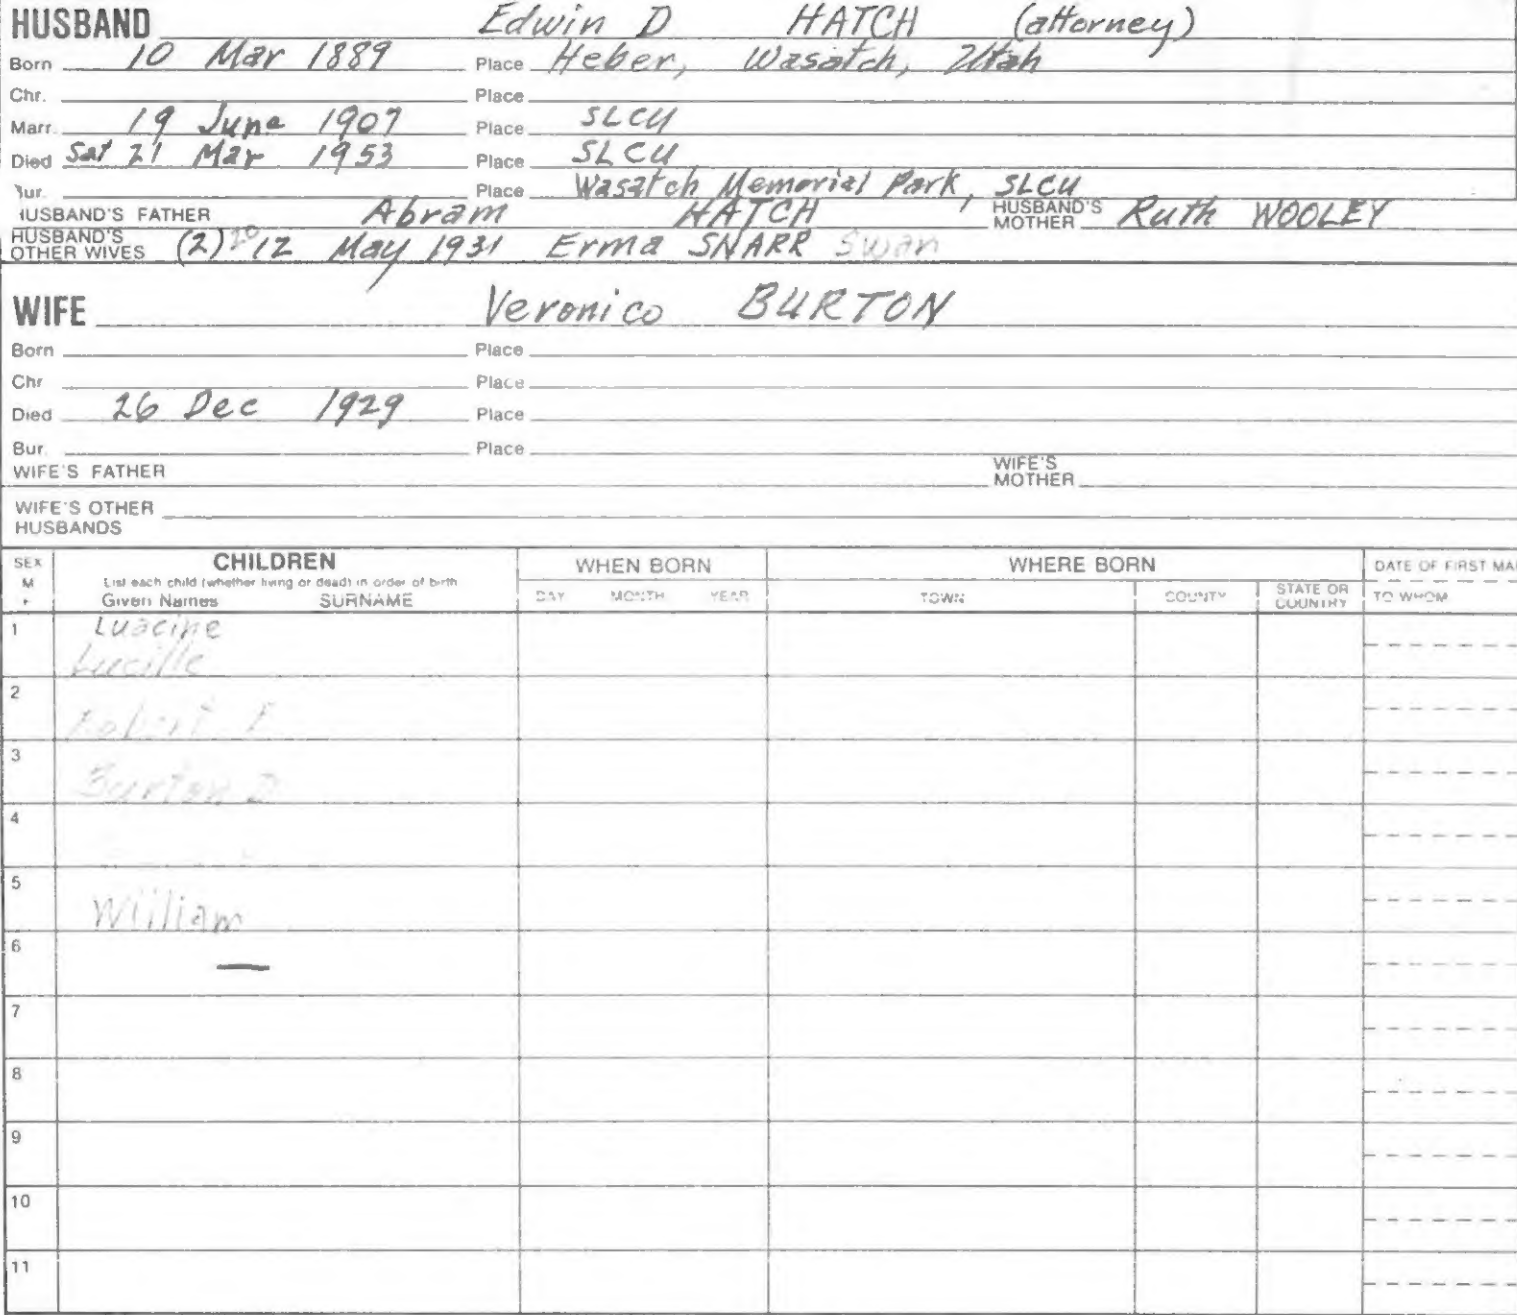 HUSBAND Edwin D HATCH (attorney)
Born 10 Mar 1889 Place Heber, Wasatch, Utah
Chr. Place
Marr. 19 June 1907 Place SLCU
Died Sat 21 Mar 1953 Place SLCU
Bur. Place Wasatch Memorial Park, SLCU
HUSBAND'S FATHER Abram HATCH HUSBAND'S MOTHER Ruth WOOLEY
HUSBAND'S OTHER WIVES (2) 20 12 May 1931 Erma SNARR Swan
WIFE Veronico BURTON
Born Place
Chr Place
Died 26 Dec 1929 Place
Bur. Place
WIFE'S FATHER WIFE'S MOTHER
WIFE'S OTHER HUSBANDS
SEX M F CHILDREN WHEN BORN WHERE BORN DATE OF FIRST MA
List each child (whether living or dead) in order of birth
Given Names SURNAME DAY MONTH YEAR TOWN COUNTY STATE OR COUNTRY TO WHOM
1 Luacine
Lucille
2
Robert
3
Burton D
4
5
William
6
7
8
9
10
11